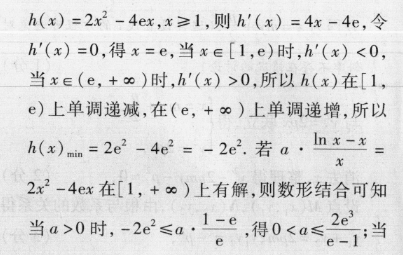 h(x)=2x²-4ex,x≥1,则 h′(x)=4x-4e,令
h′(x)=0,得 x=e,当 x∈[1,e)时,h′(x)<0,
当 x∈(e,+∞)时,h′(x)>0,所以 h(x)在[1,
e)上单调递减,在(e,+∞)上单调递增,所以
h(x)min=2e²-4e²=-2e². 若 a·(ln x-x)/x=
2x²-4ex 在[1,+∞)上有解,则数形结合可知
当 a>0 时,-2e²≤a·(1-e)/e,得0<a≤2e³/(e-1);当